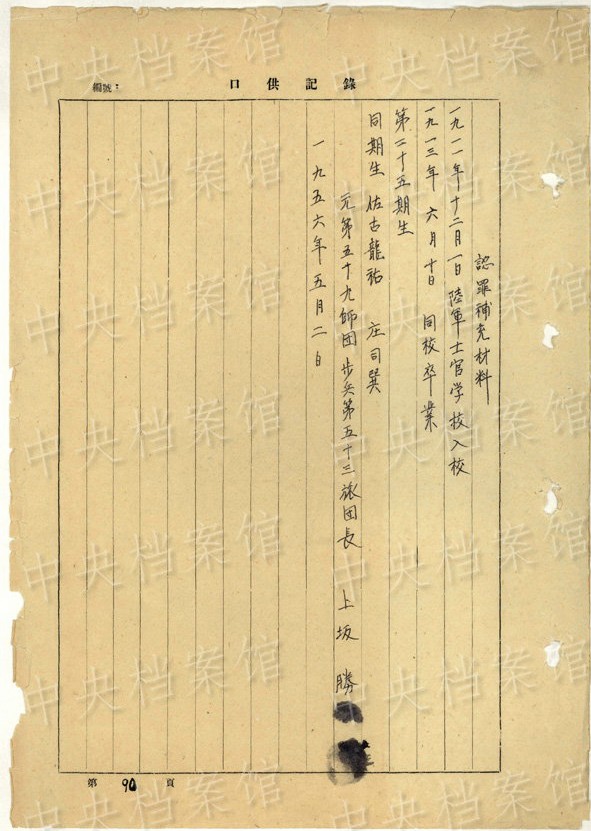 口供記錄
編號：
認罪補充材料
一九一一年十二月一日 陸軍士官学校入校
一九一三年 六月十日 同校卒業
第二十五期生
同期生 佐古龍祐 庄司巽
元第五十九師団 步兵第五十三旅団長 上坂 勝
一九五六年五月二日
第 90 頁
中央档案馆